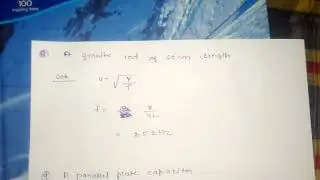 100
Q) A granite rod of 60 cm length
Soln v = √(Y/ρ)
f = v/2L
=
Q) A parallel plate capacitor